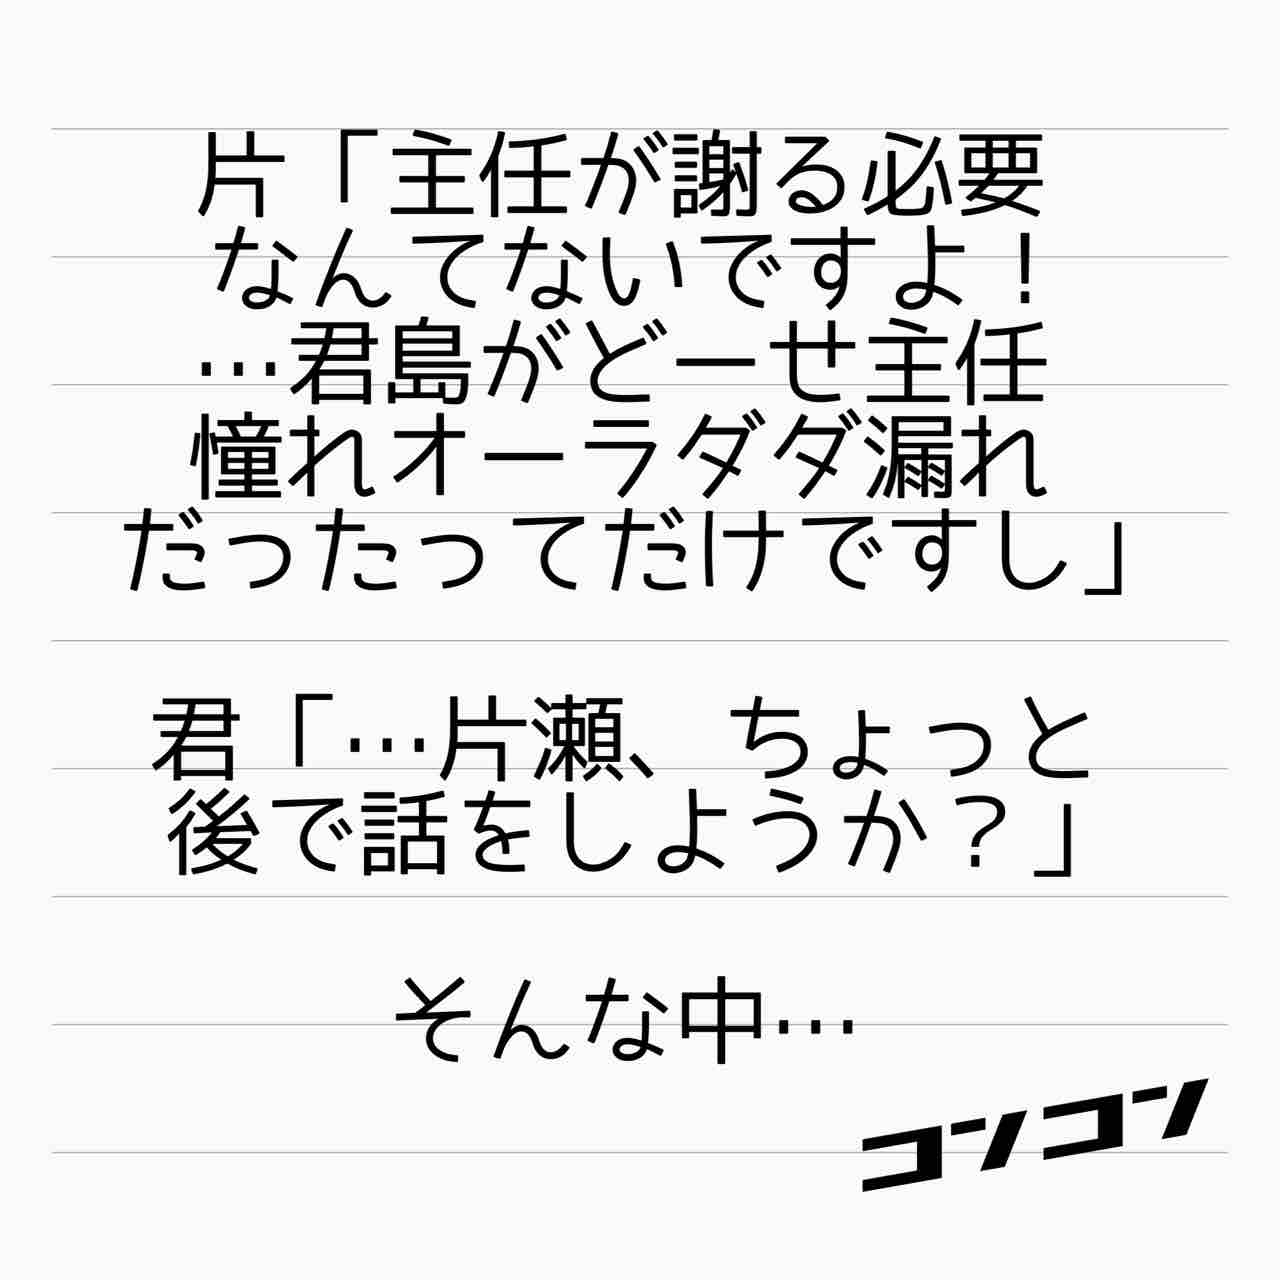 片「主任が謝る必要
なんてないですよ！
…君島がどーせ主任
憧れオーラダダ漏れ
だったってだけですし」
君「…片瀬、ちょっと
後で話をしようか？」
そんな中…
コンコン